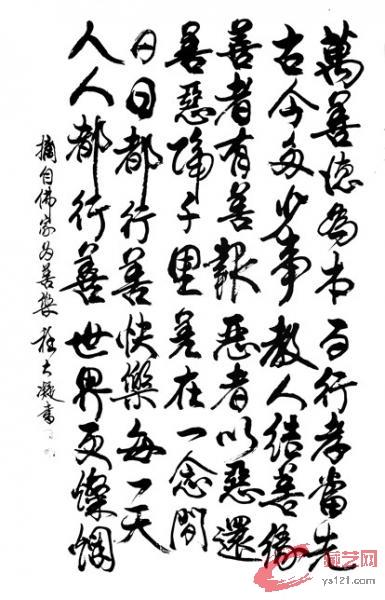 萬善德為本百行孝當先
古今多少事教人結善緣
善者有善報惡者以惡還
善惡隔千里差在一念間
日日都行善快樂每一天
人人都行善世界更燦爛
摘自佛家为善 大凝書
艺网
ys121.com